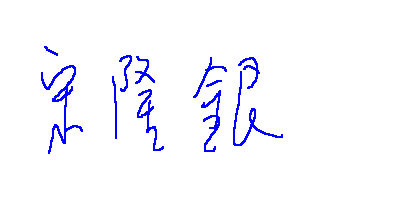 宋隆銀